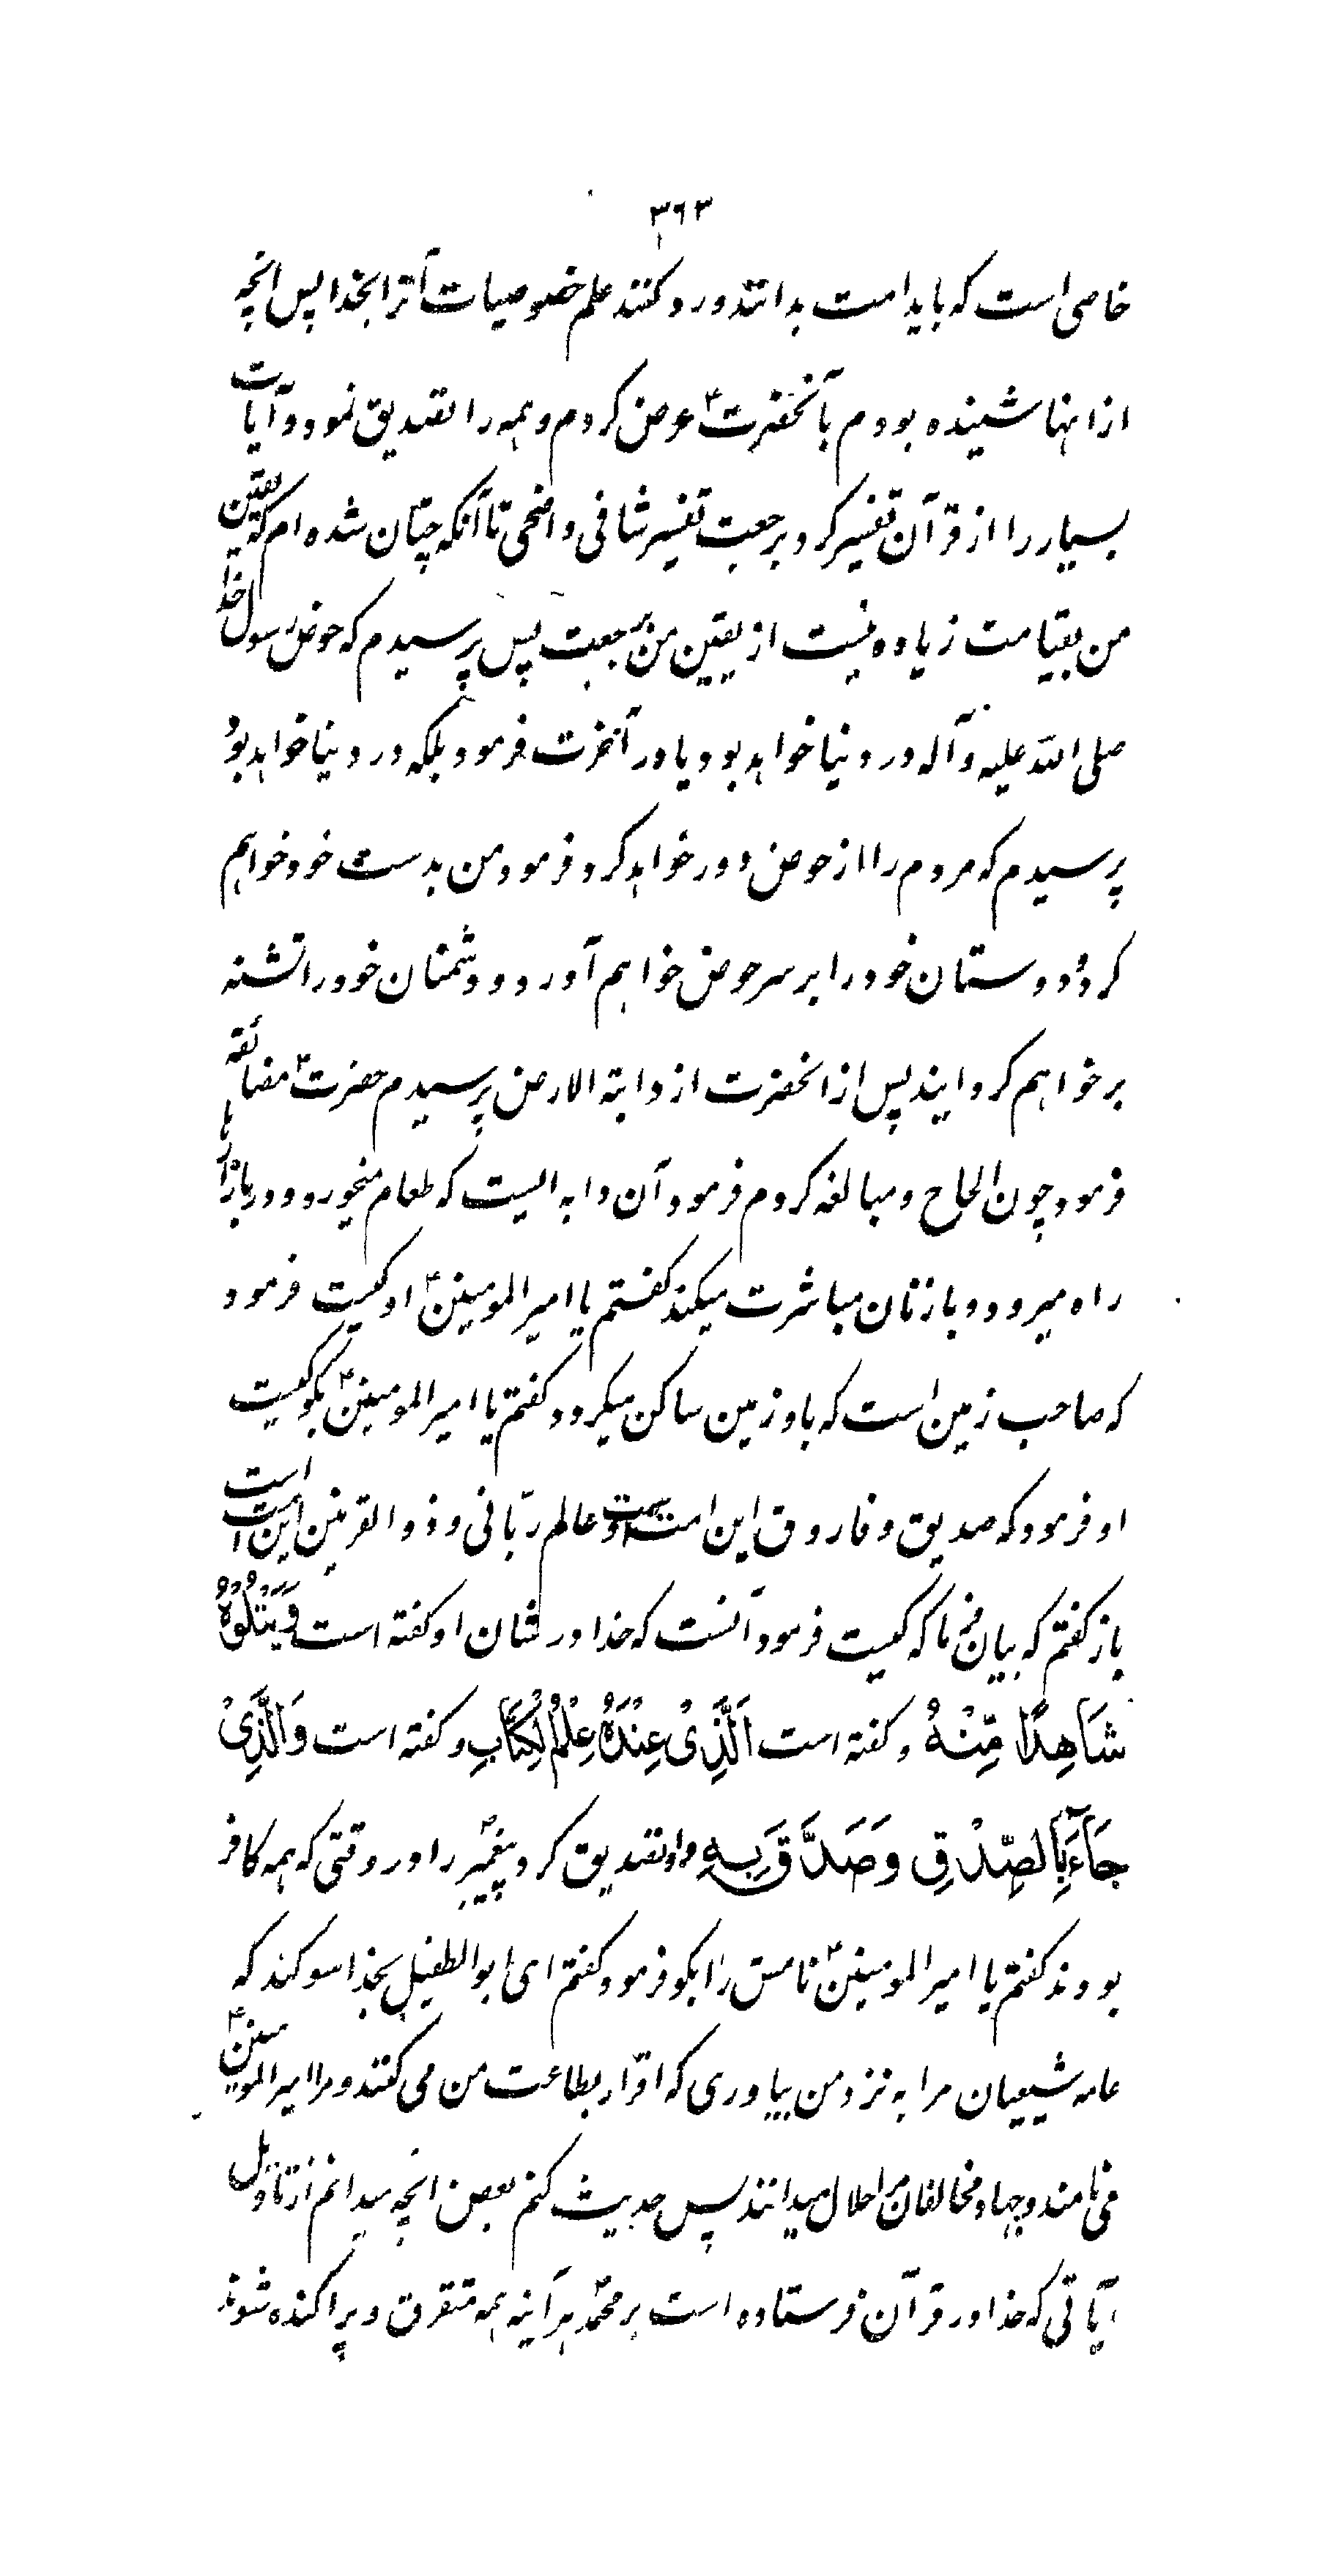 ۳۶۳
خاصی است که باید امت بدانند و رد کنند علم خصوصیات آنرا بخدا پس انچه
از اینها شنیده بودم بآنحضرت؏ عرض کردم و همه را تصدیق نمود و آیات
بسیار را از قرآن تفسیر کرد برجعت تفسیر شافی واضحی تا آنکه چنان شده ام که یقین
من بقیامت زیاده نیست از یقین من برجعت پس پرسیدم که حوض رسول خدا
صلی الله علیه و آله در دنیا خواهد بود یا در آخرت فرمود بلکه در دنیا خواهد بود
پرسیدم که مردم را از حوض دور خواهد کرد فرمود من بدست خود خواهم
کرد و دوستان خود را بر سر حوض خواهم آورد و دشمنان خود را تشنه
بر خواهم گردایند پس از انحضرت از دابة الارض پرسیدم حضرت؏ مضائقه
فرمود چون الحاح و مبالغه کردم فرمود آن دابه ایست که طعام میخورد و در بازارها
راه میرود و با زنان مباشرت میکند گفتم یا امیر المومنین؏ او کیست فرمود
که صاحب زمین است که باو زمین ساکن میگردد گفتم یا امیر المومنین؏ بگو کیست
او فرمود که صدیق و فاروق این امت است و عالم ربّانی و ذو القرنین این امت است
باز گفتم که بیان فرما که کیست فرمود آنست که خدا در شان او گفته است وَيَتْلُوْهُ
شَاهِدًا مِّنْهُ و گفته است اَلَّذِیْ عِنْدَهٗ عِلْمُ الْكِتَابِ و گفته است وَالَّذِیْ
جَآءَ بِالصِّدْقِ وَصَدَّقَ بِهٖ و او تصدیق کرد پیغمبر؏ را در وقتی که همه کافر
بودند گفتم یا امیر المومنین؏ نامش را بگو فرمود گفتم ای ابو الطفیل بخدا سوگند که
عامه شیعیان مرا به نزد من بیاوری که اقرار بطاعت من می کنند و مرا امیر المومنین؏
می نامند و جهاد مخالفان مرا حلال میدانند پس حدیث کنم بعض انچه میدانم از تاویل
آیاتی که خدا در قرآن فرستاده است بر محمد؏ هر آینه همه متفرق و پراکنده شوند